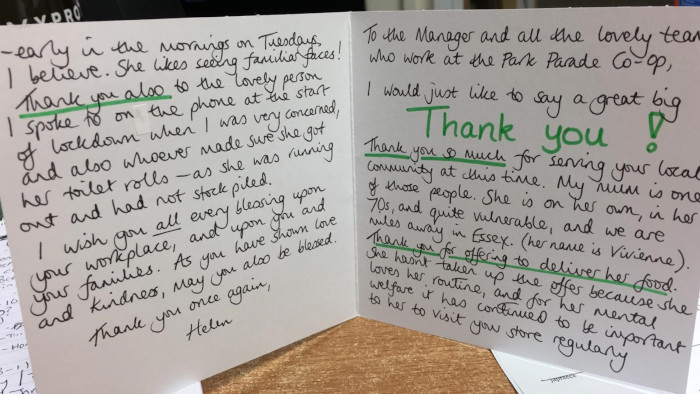 To the Manager and all the lovely team
who work at the Park Parade Co-op,
I would just like to say a great big
Thank you !
Thank you so much for serving your local
community at this time. My mum is one
of those people. She is on her own, in her
70s, and quite vulnerable, and we are
miles away in Essex. (her name is Vivienne).
Thank you for offering to deliver her food.
She hasn't taken up the offer because she
loves her routine, and for her mental
welfare it has continued to be important
to her to visit your store regularly
-early in the mornings on Tuesdays,
I believe. She likes seeing familiar faces!
Thank you also to the lovely person
I spoke to on the phone at the start
of lockdown when I was very concerned,
and also whoever made sure she got
her toilet rolls - as she was running
out and had not stock piled.
I wish you all every blessing upon
your workplace, and upon you and
your families. As you have shown love
and kindness, may you also be blessed.
Thank you once again,
Helen